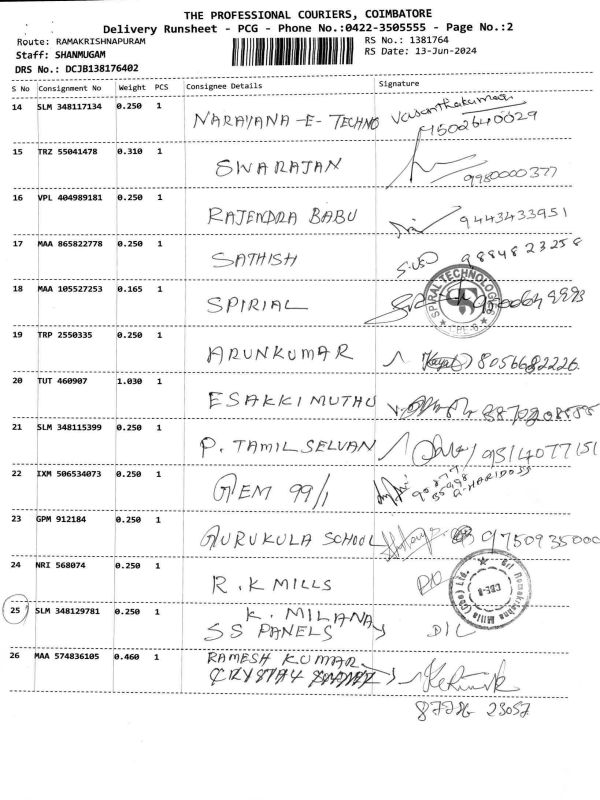 THE PROFESSIONAL COURIERS, COIMBATORE
Delivery Runsheet - PCG - Phone No.:0422-3505555 - Page No.:2
Route: RAMAKRISHNAPURAM RS No.: 1381764
Staff: SHANMUGAM RS Date: 13-Jun-2024
DRS No.: DCJB138176402
S No Consignment No Weight PCS Consignee Details Signature
14 SLM 348117134 0.250 1 NARAYANA -E- TECHNO Vasanthakumar
15 TRZ 55041478 0.310 1 SWARAJAN
9980000377
16 VPL 404989181 0.250 1 RAJENDRA BABU 9443433951
17 MAA 865822778 0.250 1 SATHISH 9884823258
18 MAA 105527253 0.165 1 SPIRIAL SPIRAL TECHNOLOGIES
CBE-6
19 TRP 2550335 0.250 1 ARUNKUMAR 8056682226
20 TUT 460907 1.030 1 ESAKKIMUTHU
21 SLM 348115399 0.250 1 P. TAMIL SELVAN
22 IXM 506534073 0.250 1 GEM 99/1 HARIDOSS
23 GPM 912184 0.250 1 GURUKULA SCHOOL 9750935000
24 NRI 568074 0.250 1 R.K MILLS Sri Ramakrishna Mills (Cbe) Ltd.
CBE-6
25 SLM 348129781 0.250 1 K. MILANAY
SS PANELS D/L
26 MAA 574836105 0.460 1 RAMESH KUMAR
CRYSTAL
87786 23057